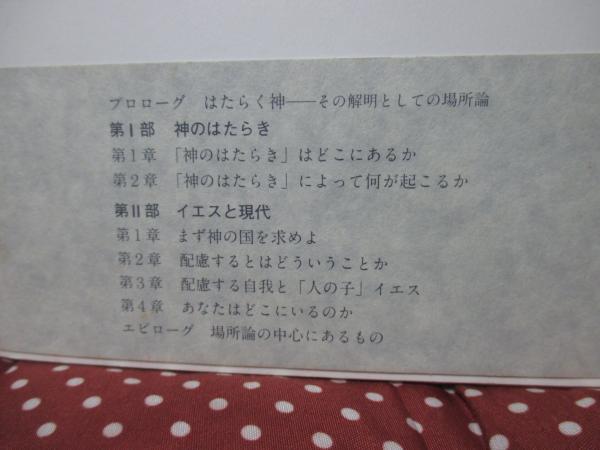 プロローグ　はたらく神──その解明としての場所論
第Ⅰ部　神のはたらき
第1章　「神のはたらき」はどこにあるか
第2章　「神のはたらき」によって何が起こるか
第Ⅱ部　イエスと現代
第1章　まず神の国を求めよ
第2章　配慮するとはどういうことか
第3章　配慮する自我と「人の子」イエス
第4章　あなたはどこにいるのか
エピローグ　場所論の中心にあるもの